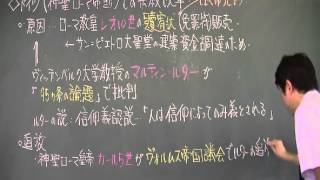 ドイツ(神聖ローマ帝国)での宗教改革
○原因…ローマ教皇レオ10世の贖宥状(免罪符)販売
←サン=ピエトロ大聖堂の建築資金調達のため
ヴィッテンベルク大学教授のマルティン=ルターが
「95ヶ条の論題」で批判
ルターの説:信仰義認説…「人は信仰によってのみ義とされる」
○追放
・神聖ローマ皇帝カール5世がヴォルムズ帝国議会でルターの追放